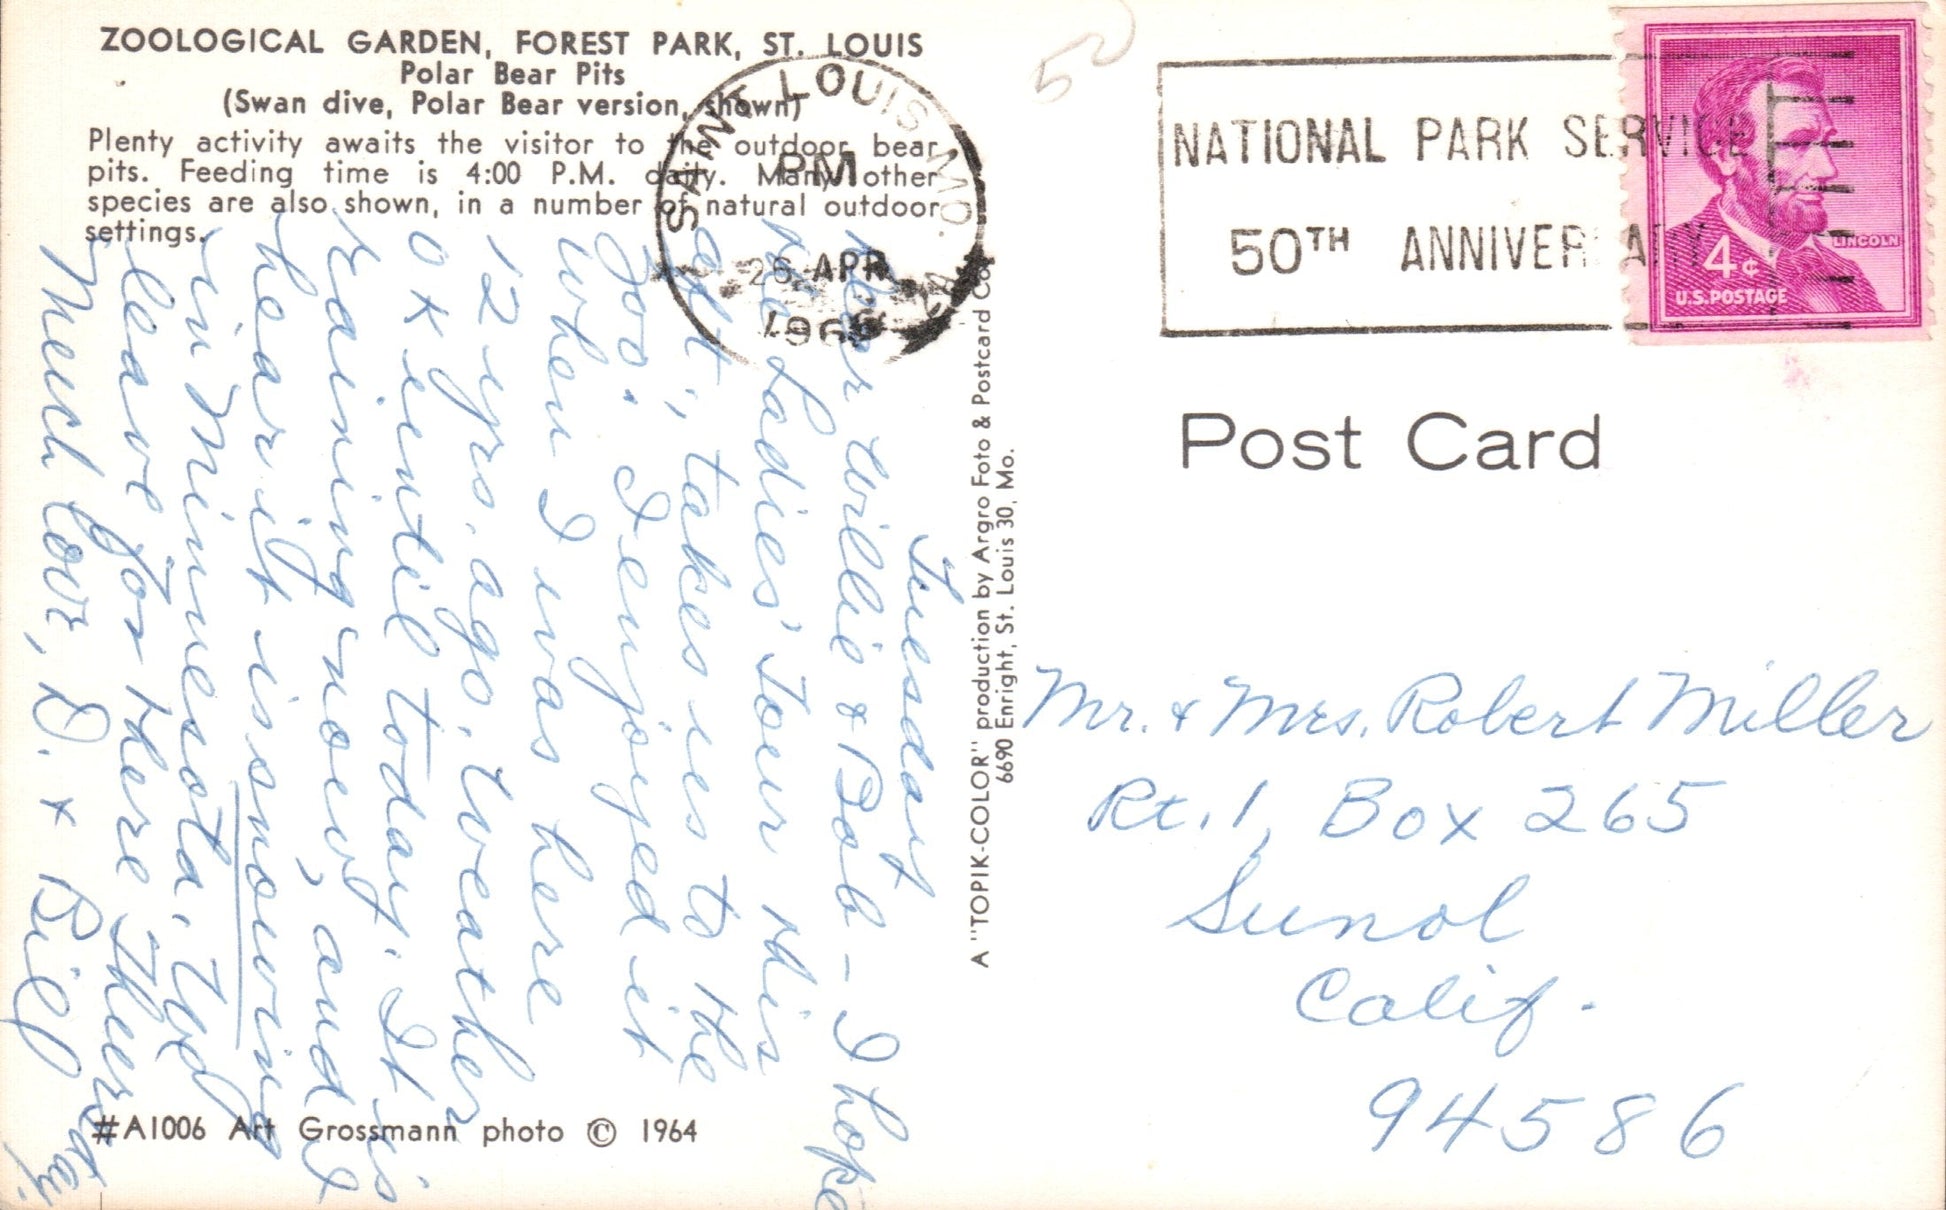 ZOOLOGICAL GARDEN, FOREST PARK, ST. LOUIS
Polar Bear Pits
(Swan dive, Polar Bear version, shown)
Plenty activity awaits the visitor to the outdoor bear
pits. Feeding time is 4:00 P.M. daily. Many other
species are also shown, in a number of natural outdoor
settings.
SAINT LOUIS MO.
PM
APR
NATIONAL PARK SERVICE
50TH ANNIVERSARY
LINCOLN
4¢
U.S.POSTAGE
50
Post Card
Tuesday
Dear Willie & Bob - I hope
the Ladies' Tour this
aft., takes us to the
Zoo. I enjoyed it
when I was here
12 yrs. ago, weather
OK until today. It is
raining now, and I
hear it is snowing
in Minnesota, We
leave for there Thursday.
Much love, D. & Bill
A "TOPIK-COLOR" production by Argro Foto & Postcard Co.
6690 Enright, St. Louis 30, Mo.
Mr. & Mrs. Robert Miller
Rt. 1, Box 265
Sunol
Calif.
94586
#A1006 Art Grossmann photo © 1964